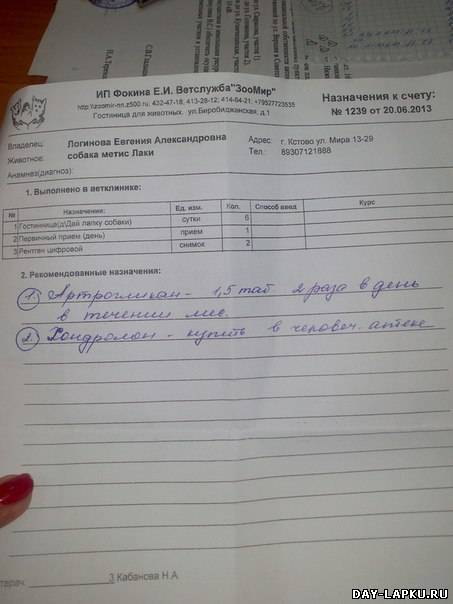 ИП Фокина Е.И. Ветслужба"ЗооМир"
http://zoomir-nn.z500.ru; 432-47-18; 413-28-12; 414-64-21; +79527723535
Гостиница для животных. ул.Биробиджанская, д.1
Назначения к счету:
№ 1239 от 20.06.2013
Владелец: Логинова Евгения Александровна
Адрес: г. Кстово ул. Мира 13-29
Животное: собака метис Лаки
Тел.: 89307121888
Анамнез(диагноз):
1. Выполнено в ветклинике:
№ Назначение: Ед. изм. Кол. Способ введ Курс
1 Гостинница(д\Дай лапку собаки) сутки 6
2 Первичный прием (день) прием 1
3 Рентген цифровой снимок 2
2. Рекомендованные назначения:
1. Артрогликан - 1,5 таб 2 раза в день
в течении мес.
2. Хондролон - купить в человеч. аптеке
З Кабанова Н.А.
DAY-LAPKU.RU